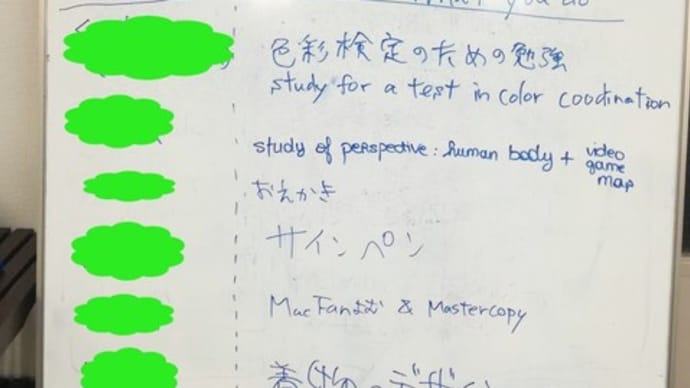 what you do
色彩検定のための勉強
study for a test in color coodination
study of perspective: human body + video game map
おえかき
サインペン
MacFanよむ & Mastercopy
着物のデザイン